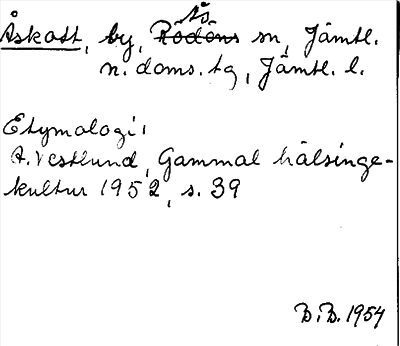 Ås
Åskott, by, Rödöns sn, Jämtl.
n. doms. tg, Jämtl. l.
Etymologi:
A. Vestlund, Gammal hälsinge-
kultur 1952, s. 39
B.B. 1954